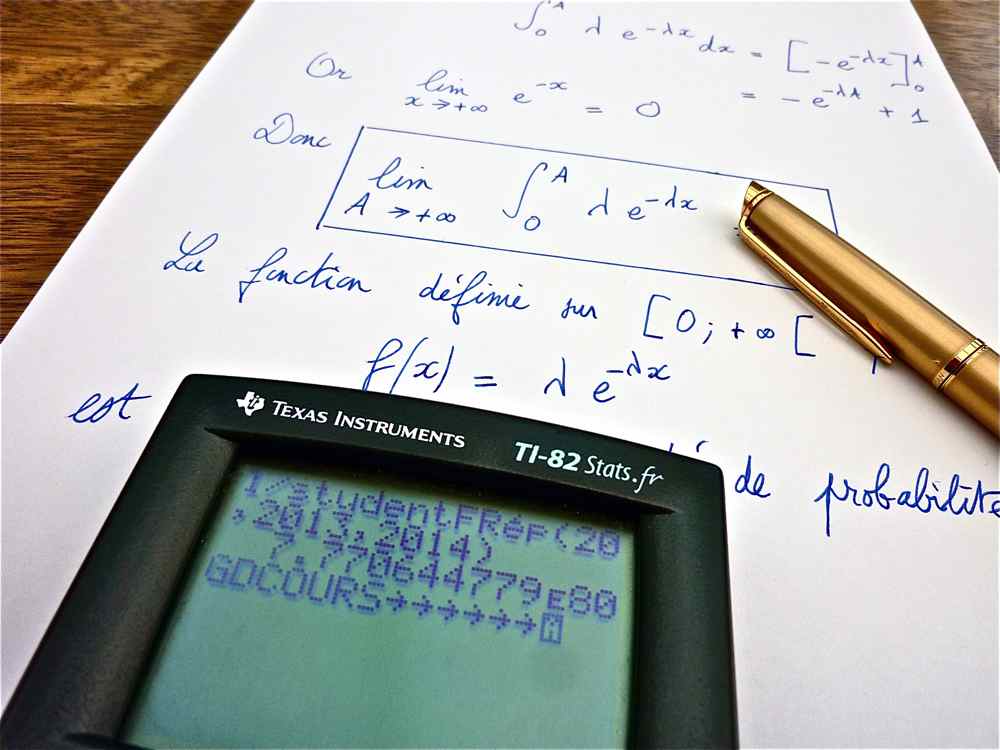 ∫₀ᴬ λ e^(-λx) dx = [-e^(-λx)]₀ᴬ
Or lim x→+∞ e^(-x) = 0 = -e^(-λA) + 1
Donc lim A→+∞ ∫₀ᴬ λ e^(-λx)
La fonction définie sur [0; +∞[
f(x) = λ e^(-λx)
est de probabilité
TEXAS INSTRUMENTS
TI-82 Stats.fr
1/studentFRép(20
,2013,2014)
7.770644779E80
GDCOURS→→→→→→A